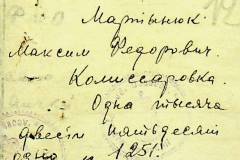 12
Мартынюк
Максим Федорович.
Комиссаровка.
Одна тысяча
двести пятьдесят
1251